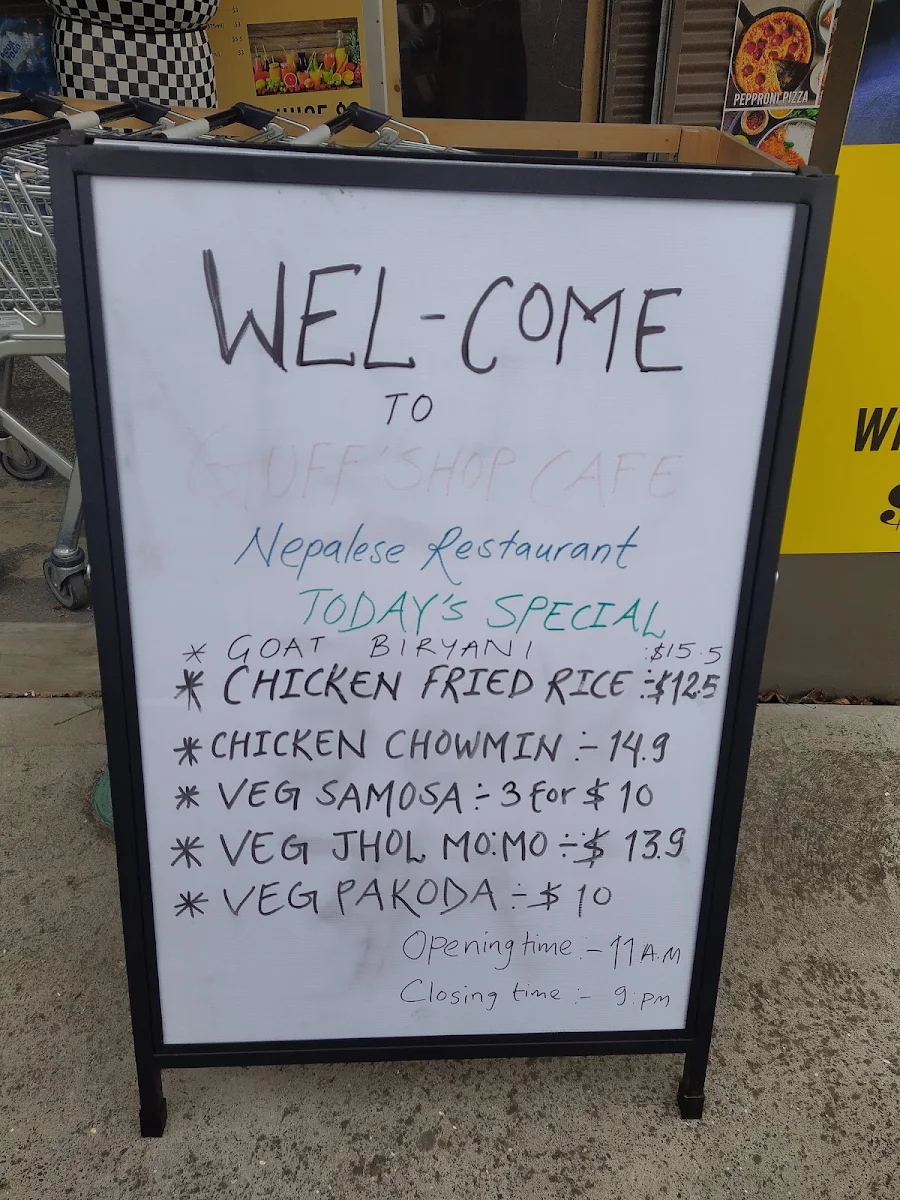 PEPPRONI PIZZA
WEL-COME
TO
GUFF'SHOP CAFE
Nepalese Restaurant
TODAY'S SPECIAL
* GOAT BIRYANI :$15.5
* CHICKEN FRIED RICE :-$12.5
* CHICKEN CHOWMIN :- 14.9
* VEG SAMOSA :- 3 for $ 10
* VEG JHOL MO:MO :-$ 13.9
* VEG PAKODA :-$ 10
Opening time :- 11 A.M
Closing time :- 9: pm